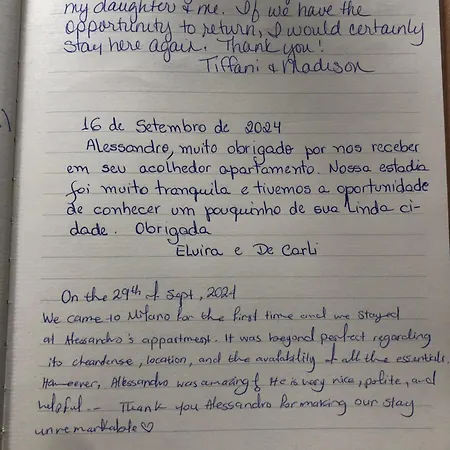 my daughter & me. If we have the
opportunity to return, I would certainly
stay here again. Thank you!
Tiffani & Madison
16 de Setembro de 2024
Alessandro, muito obrigado por nos receber
em seu acolhedor apartamento. Nossa estadia
foi muito tranquila e tivemos a oportunidade
de conhecer um pouquinho de sua linda ci-
dade. Obrigada
Elvira e De Carli
On the 29th of Sept, 2024
We came to Milano for the first time and we stayed
at Alessandro's appartment. It was beyond perfect regarding
its cleandense, location, and the availability of all the essentials.
However, Alessandro was amazing! He is very nice, polite, and
helpful.. Thank you Alessandro for making our stay
unremarkable ♡